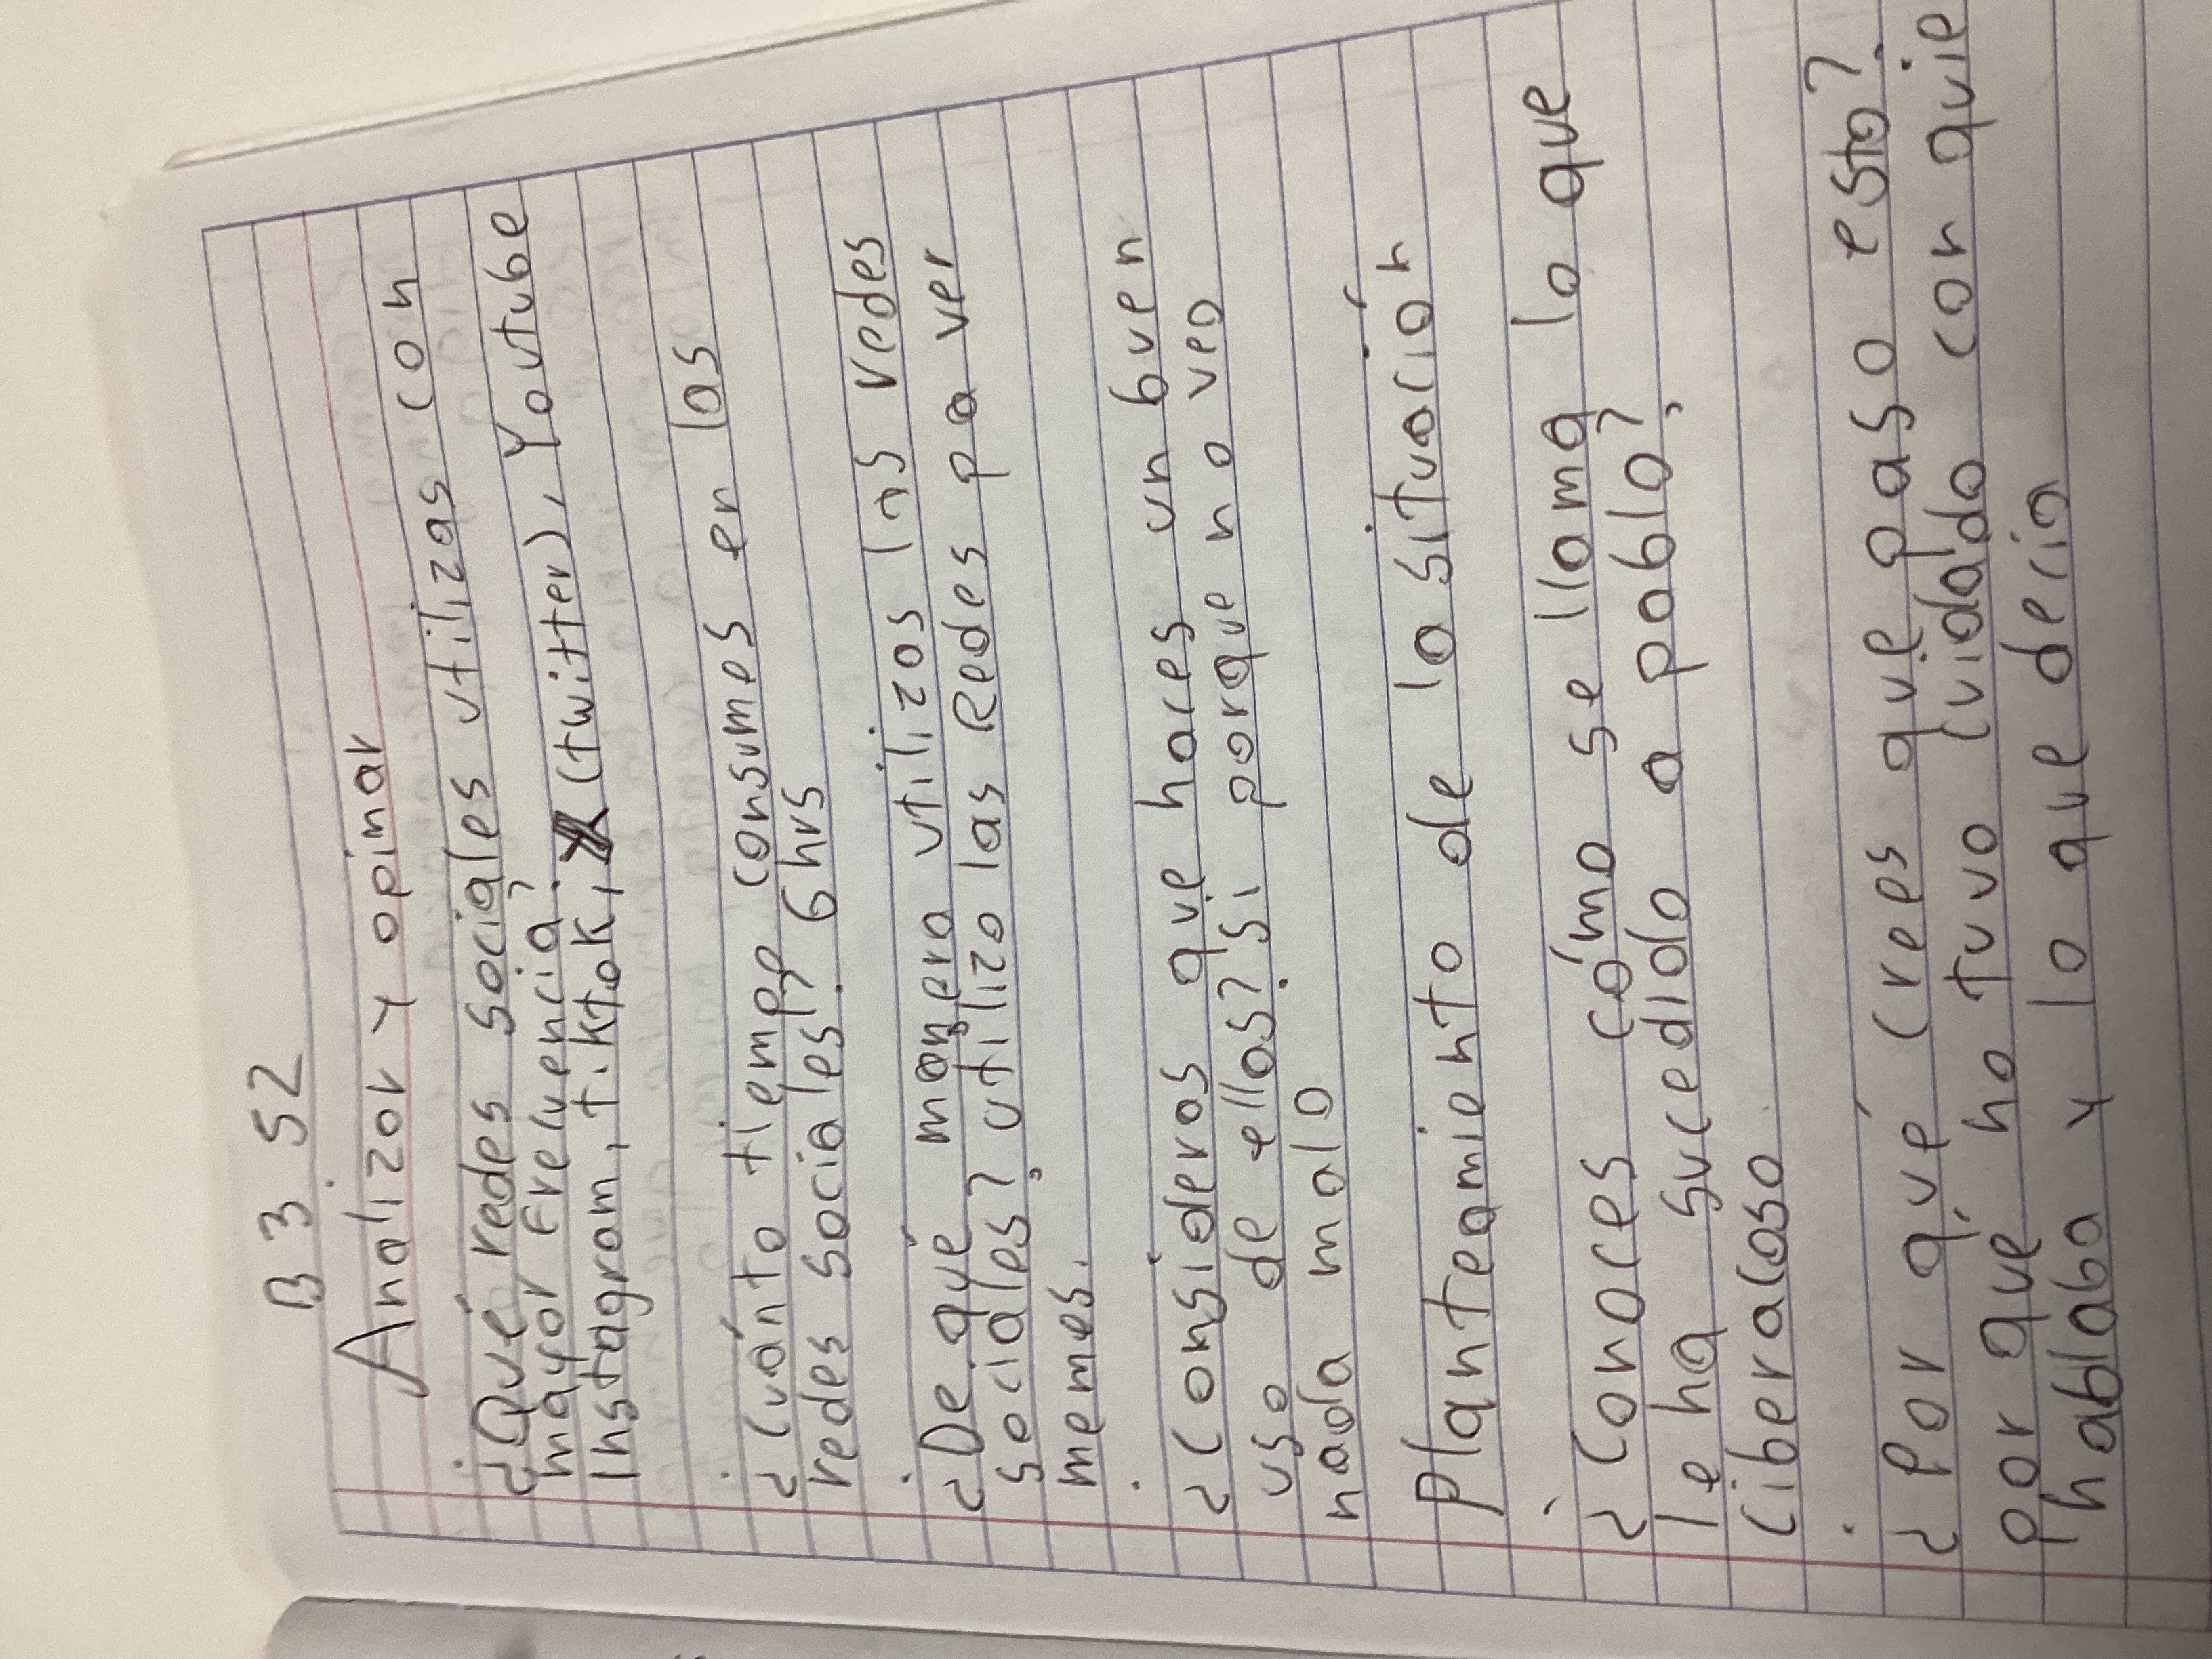 B 3 S2
Analizar y opinar
¿Qué redes sociales utilizas con
mayor frecuencia?
Instagram, tiktok, X (twitter), Youtube
¿Cuánto tiempo consumes en las
redes sociales? 6hrs
¿De qué manera utilizas las redes
sociales? utilizo las Redes pa ver
memes.
¿Consideras que haces un buen
uso de ellas? Si porque no veo
nada malo
planteamiento de la situación
¿Conoces cómo se llama lo que
le ha sucedido a pablo?
Ciberacoso
¿Por qué crees que paso esto?
Por que no tuvo cuidado con quie
hablaba y lo que decia